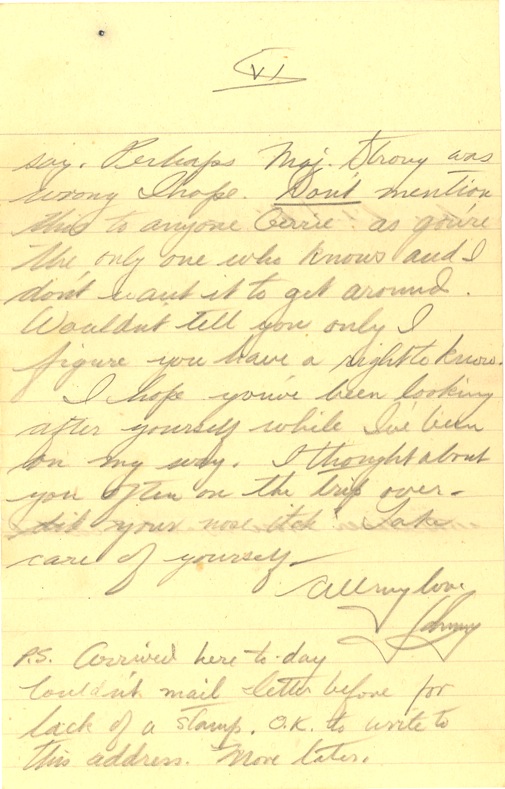 VI
say. Perhaps Maj. Strong was
wrong I hope. Don't mention
this to anyone Cerrie as you're
the only one who knows and I
don't want it to get around.
Wouldn't tell you only I
figure you have a right to know.
I hope you've been looking
after yourself while I've been
on my way. I thought about
you often on the trip over-
did your nose itch? Take
care of yourself-
All my love
Johnny
P.S. Arrived here to-day
Couldn't mail letter before for
lack of a stamp. O.K. to write to
this address. More later.